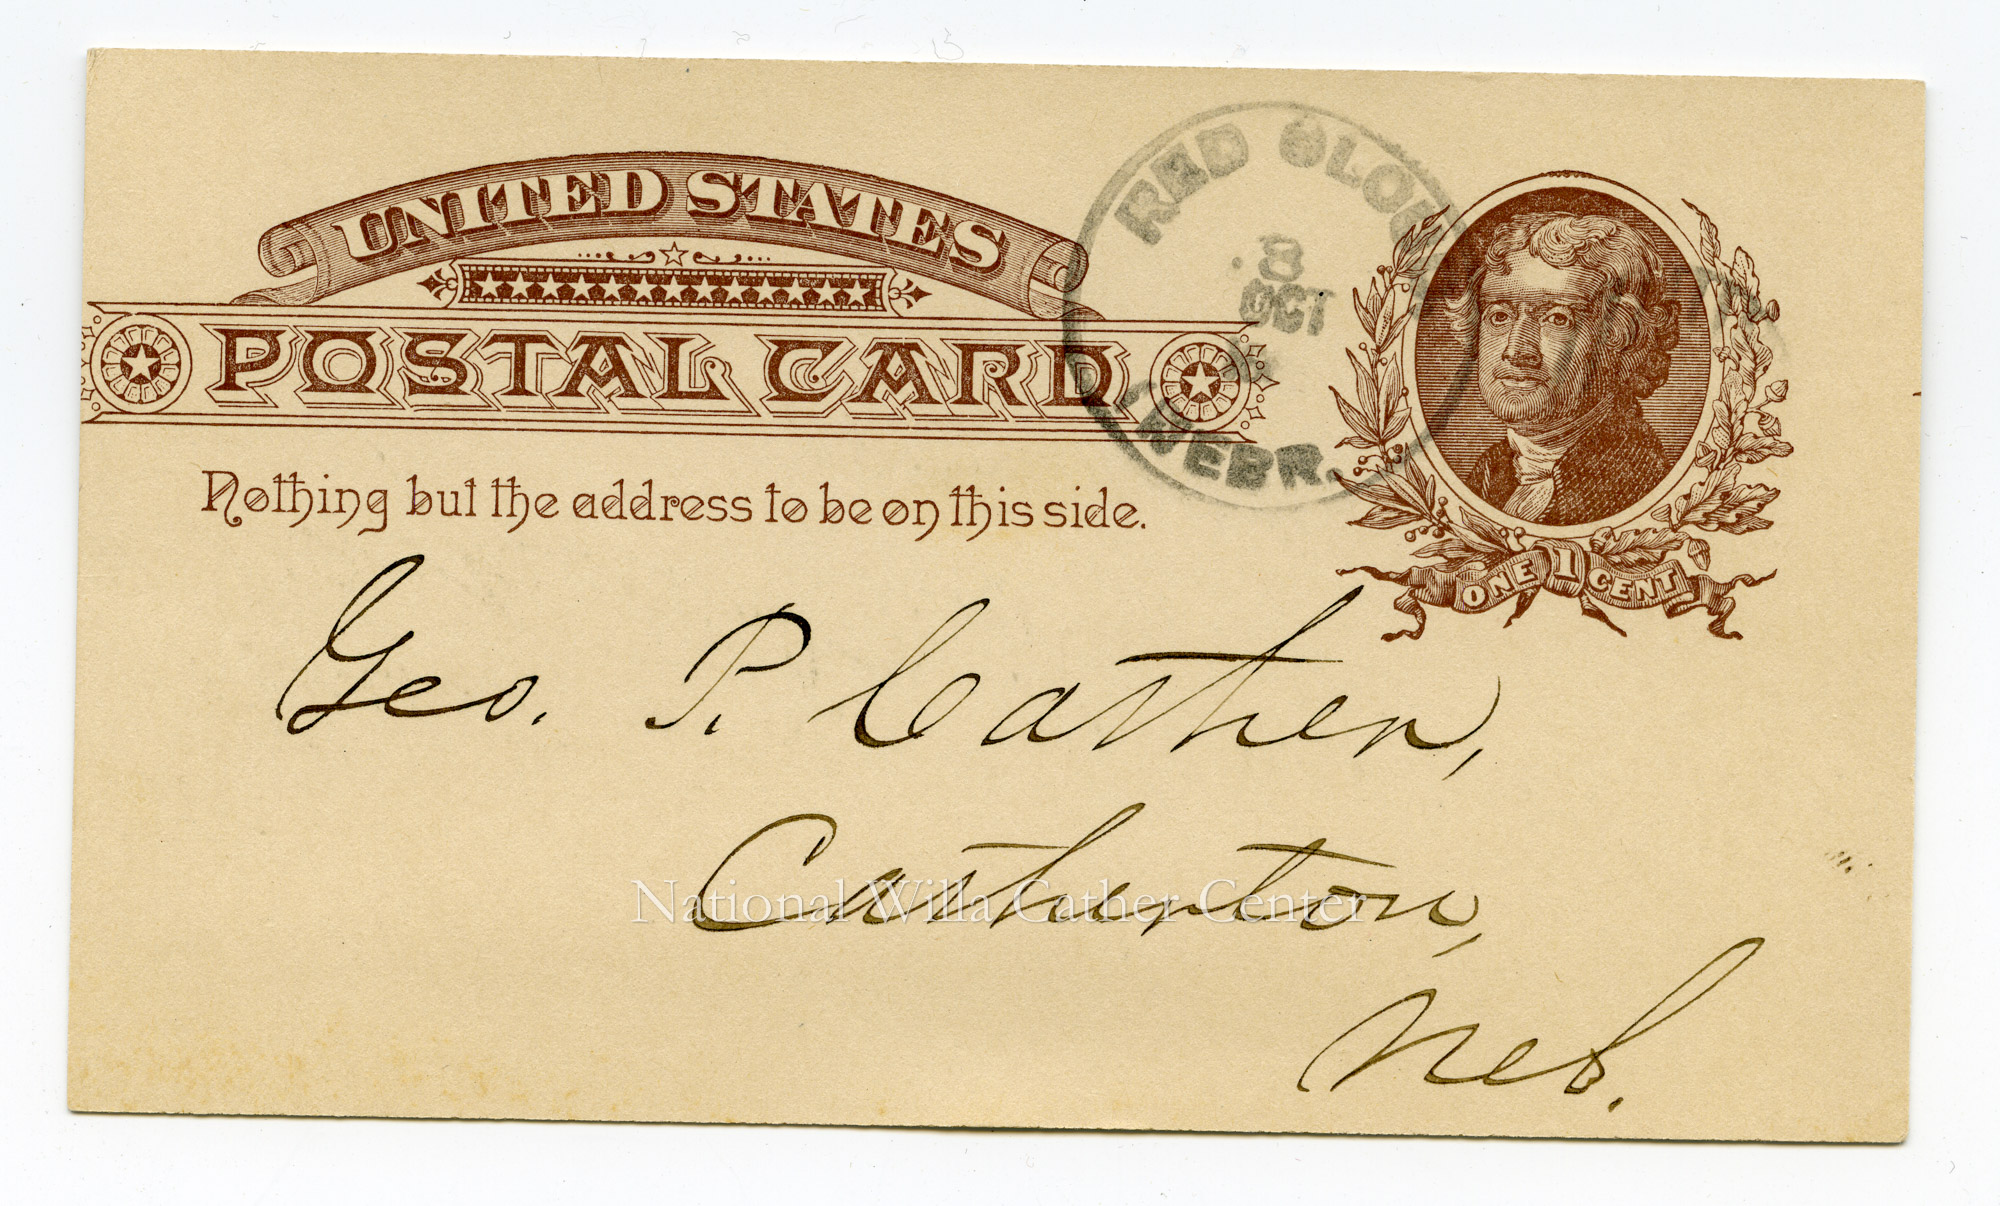 UNITED STATES
POSTAL CARD
Nothing but the address to be on this side.
RED CLOUD
8
OCT
NEBR.
ONE 1 CENT
Geo. P. Cather,
Catherton,
Neb.
National Willa Cather Center